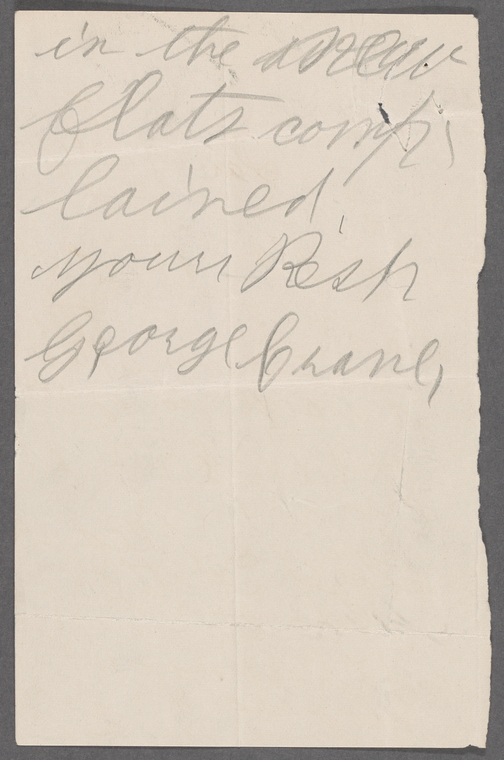 in the
flats comp
lained
yours Resp
George Crane,